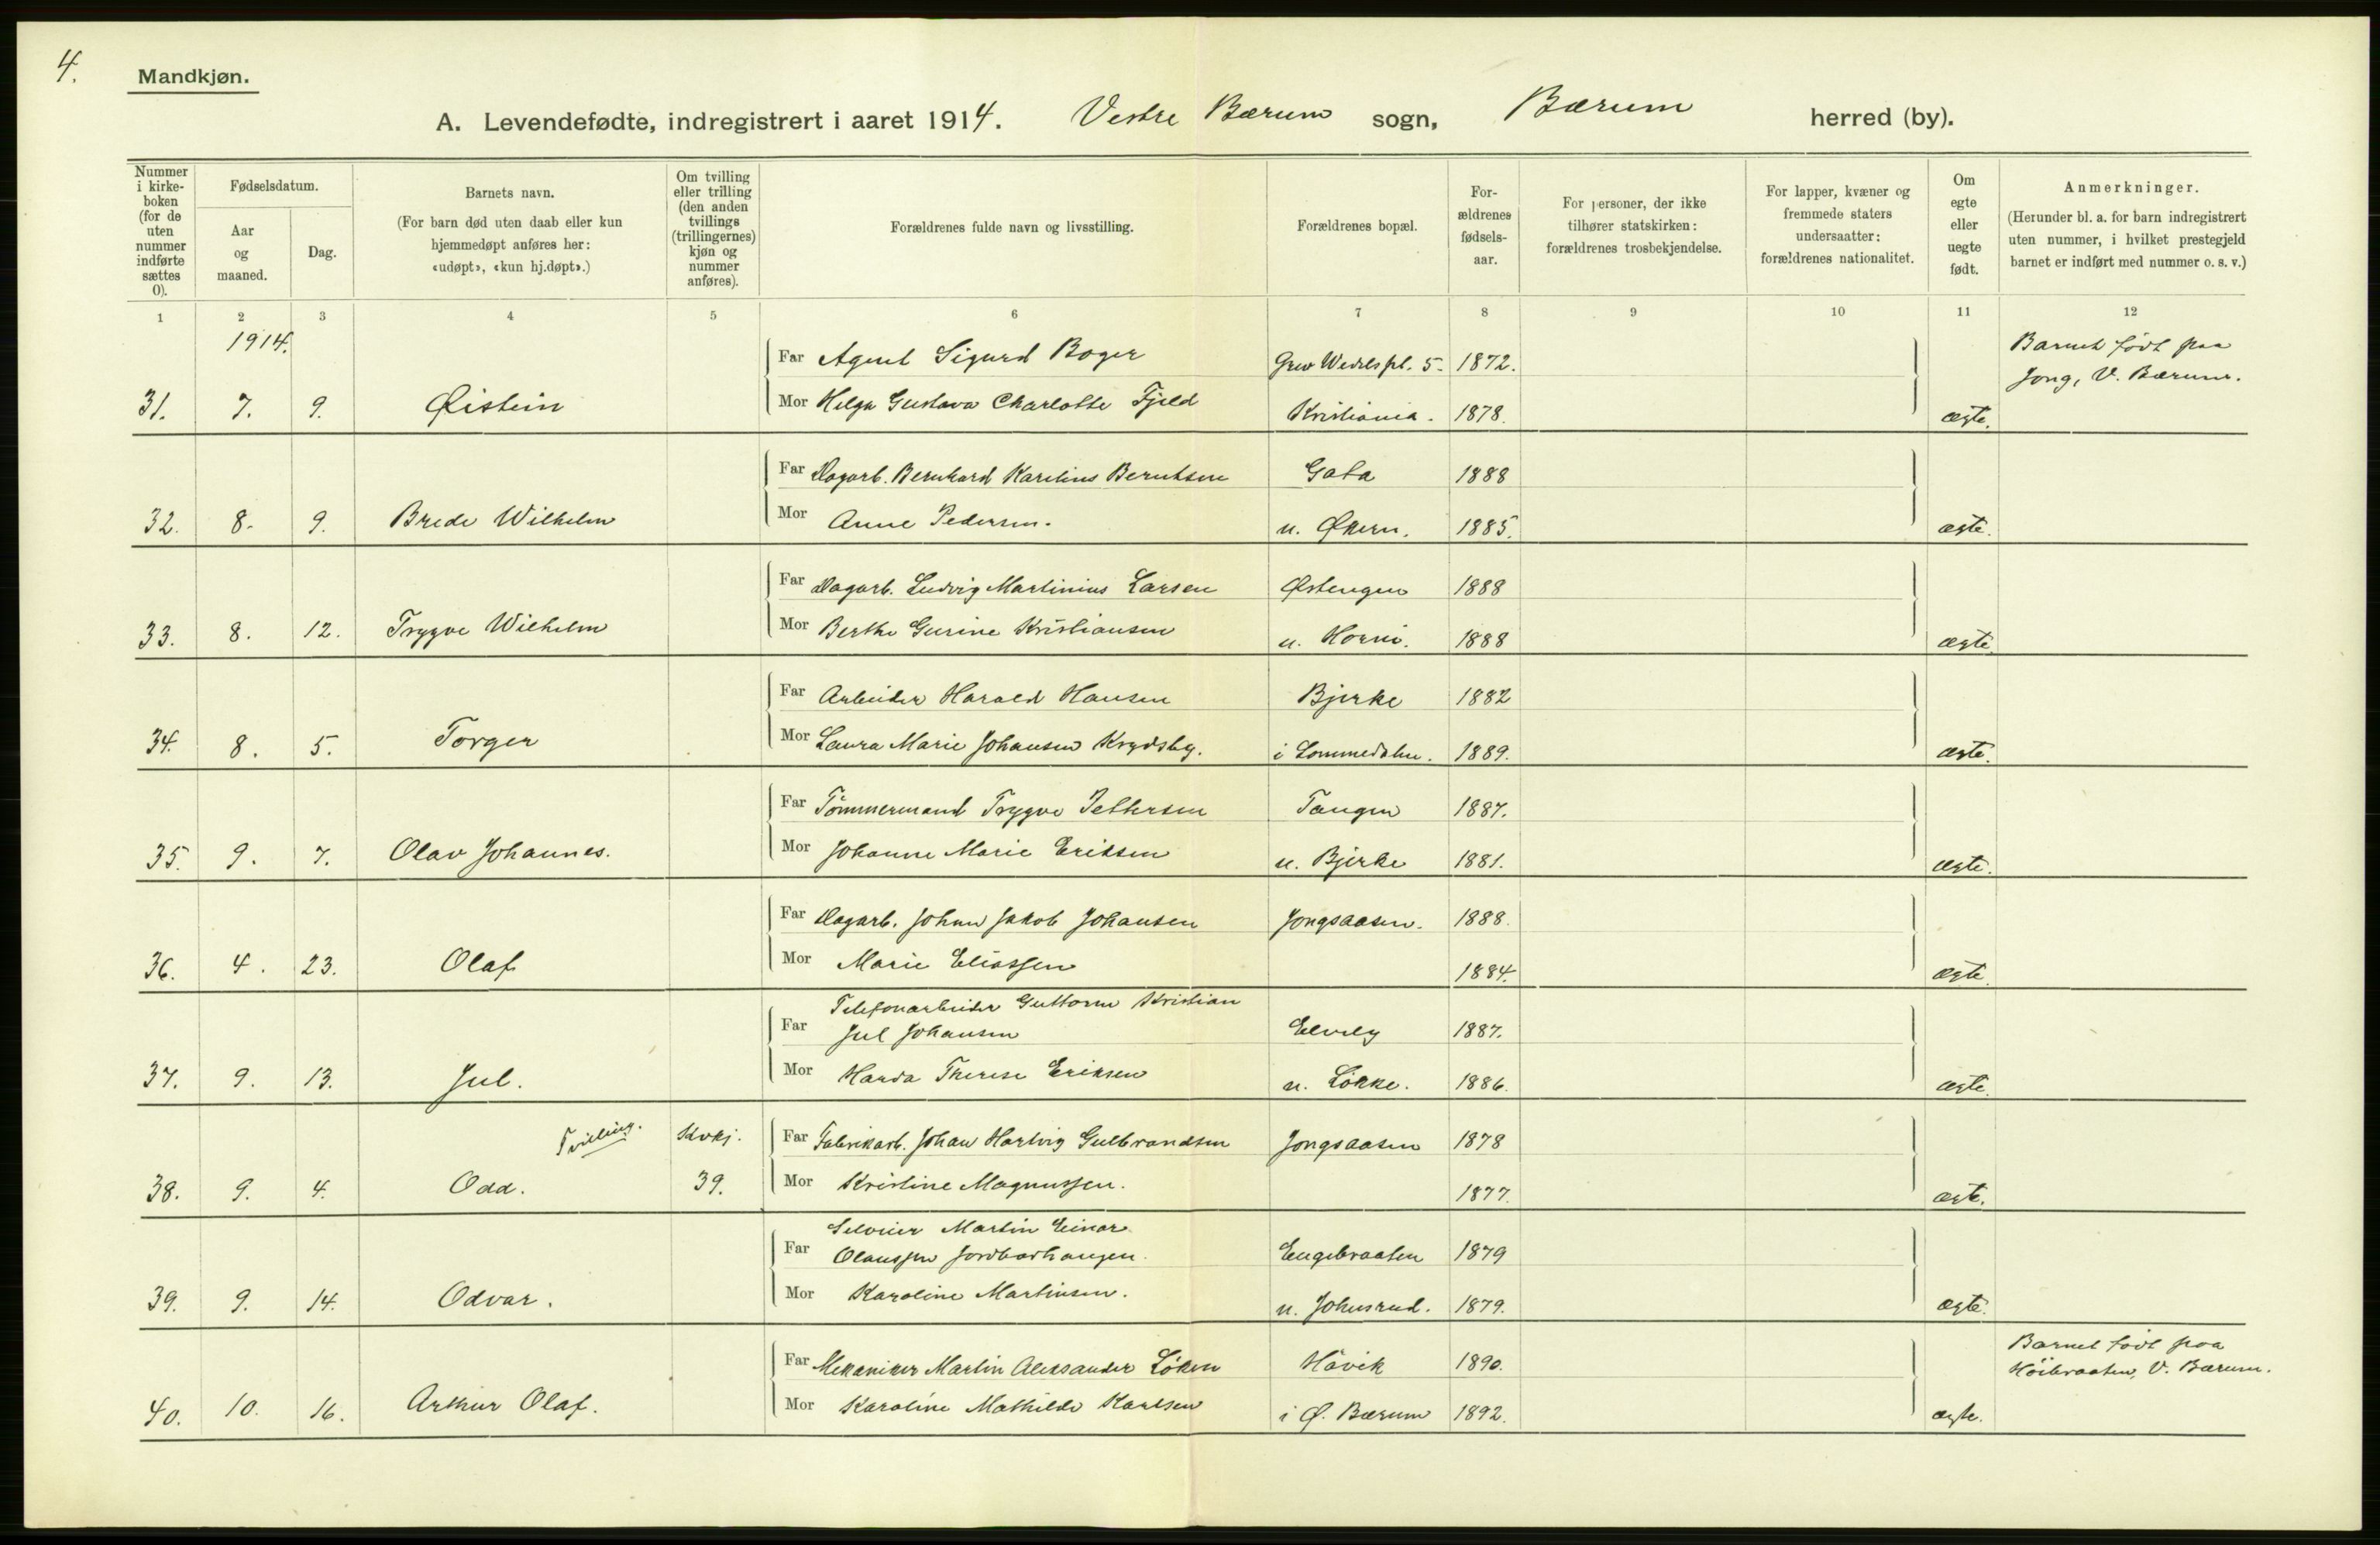 4.
Mandkjøn.
A. Levendefødte, indregistrert i aaret 1914. Vestre Bærum sogn, Bærum herred (by).
Nummer i kirke-boken (for de uten nummer indførte sættes 0).
Fødselsdatum.
Aar og maaned.
Dag.
Barnets navn.
(For barn død uten daab eller kun hjemmedøpt anføres her: «udøpt», «kun hj.døpt».)
Om tvilling eller trilling (den anden tvillings (trillingernes) kjøn og nummer anføres).
Forældrenes fulde navn og livsstilling.
Forældrenes bopæl.
For-ældrenes fødsels-aar.
For personer, der ikke tilhører statskirken: forældrenes trosbekjendelse.
For lapper, kvæner og fremmede staters undersaatter: forældrenes nationalitet.
Om egte eller uegte født.
Anmerkninger.
(Herunder bl. a. for barn indregistrert uten nummer, i hvilket prestegjeld barnet er indført med nummer o. s. v.)
1 2 3 4 5 6 7 8 9 10 11 12
1914.
Far Agent Sigurd Boger Grev Wedels pl. 5. 1872. Barnet født paa
Jong, V. Bærum.
31. 7. 9. Øistein Mor Helga Gustava Charlotte Fjeld Kristiania. 1878. ægte.
Far Dagarb. Bernhard Karelius Berntsen Gata 1888
32. 8. 9. Brede Wilhelm Mor Anne Pedersen. u. Økern. 1885. ægte.
Far Dagarb. Ludvig Martinius Larsen Østengen 1888
33. 8. 12. Trygve Wilhelm Mor Berthe Gurine Kristiansen u. Horni. 1888 ægte.
Far Arbeider Harald Hansen Bjerke 1882
34. 8. 5. Torger Mor Laura Marie Johansen Krydsby. i Lommedalen. 1889. ægte.
Far Tømmermand Trygve Pettersen Tangen 1887.
35. 9. 7. Olav Johannes. Mor Johanne Marie Eriksen u. Bjerke 1881. ægte.
Far Dagarb. Johan Jakob Johansen Jongsaasen. 1888.
36. 4. 23. Olaf Mor Marie Eliassen 1884. ægte.
Telefonarbeider Guttorm Kristian
Far Jul Johansen Elvely 1887.
37. 9. 13. Jul. Mor Harda Therese Eriksen u. Løkke. 1886. ægte.
Tvilling. Kvkj. Far Fabrikarb. Johan Hartvig Gulbrandsen Jongsaasen 1878
38. 9. 4. Odd. 39. Mor Kristine Magnussen. 1877. ægte.
Selveier Martin Einar
Far Olaussen Jordbærhaugen. Engebraaten 1879
39. 9. 14. Odvar. Mor Karoline Martinsen. u. Johnsrud. 1879. ægte.
Far Mekaniker Martin Aleksander Løken Høvik 1890. Barnet født paa
Høibraaten, V. Bærum.
40. 10. 16. Arthur Olaf. Mor Karoline Mathilde Karlsen i Ø. Bærum 1892. ægte.